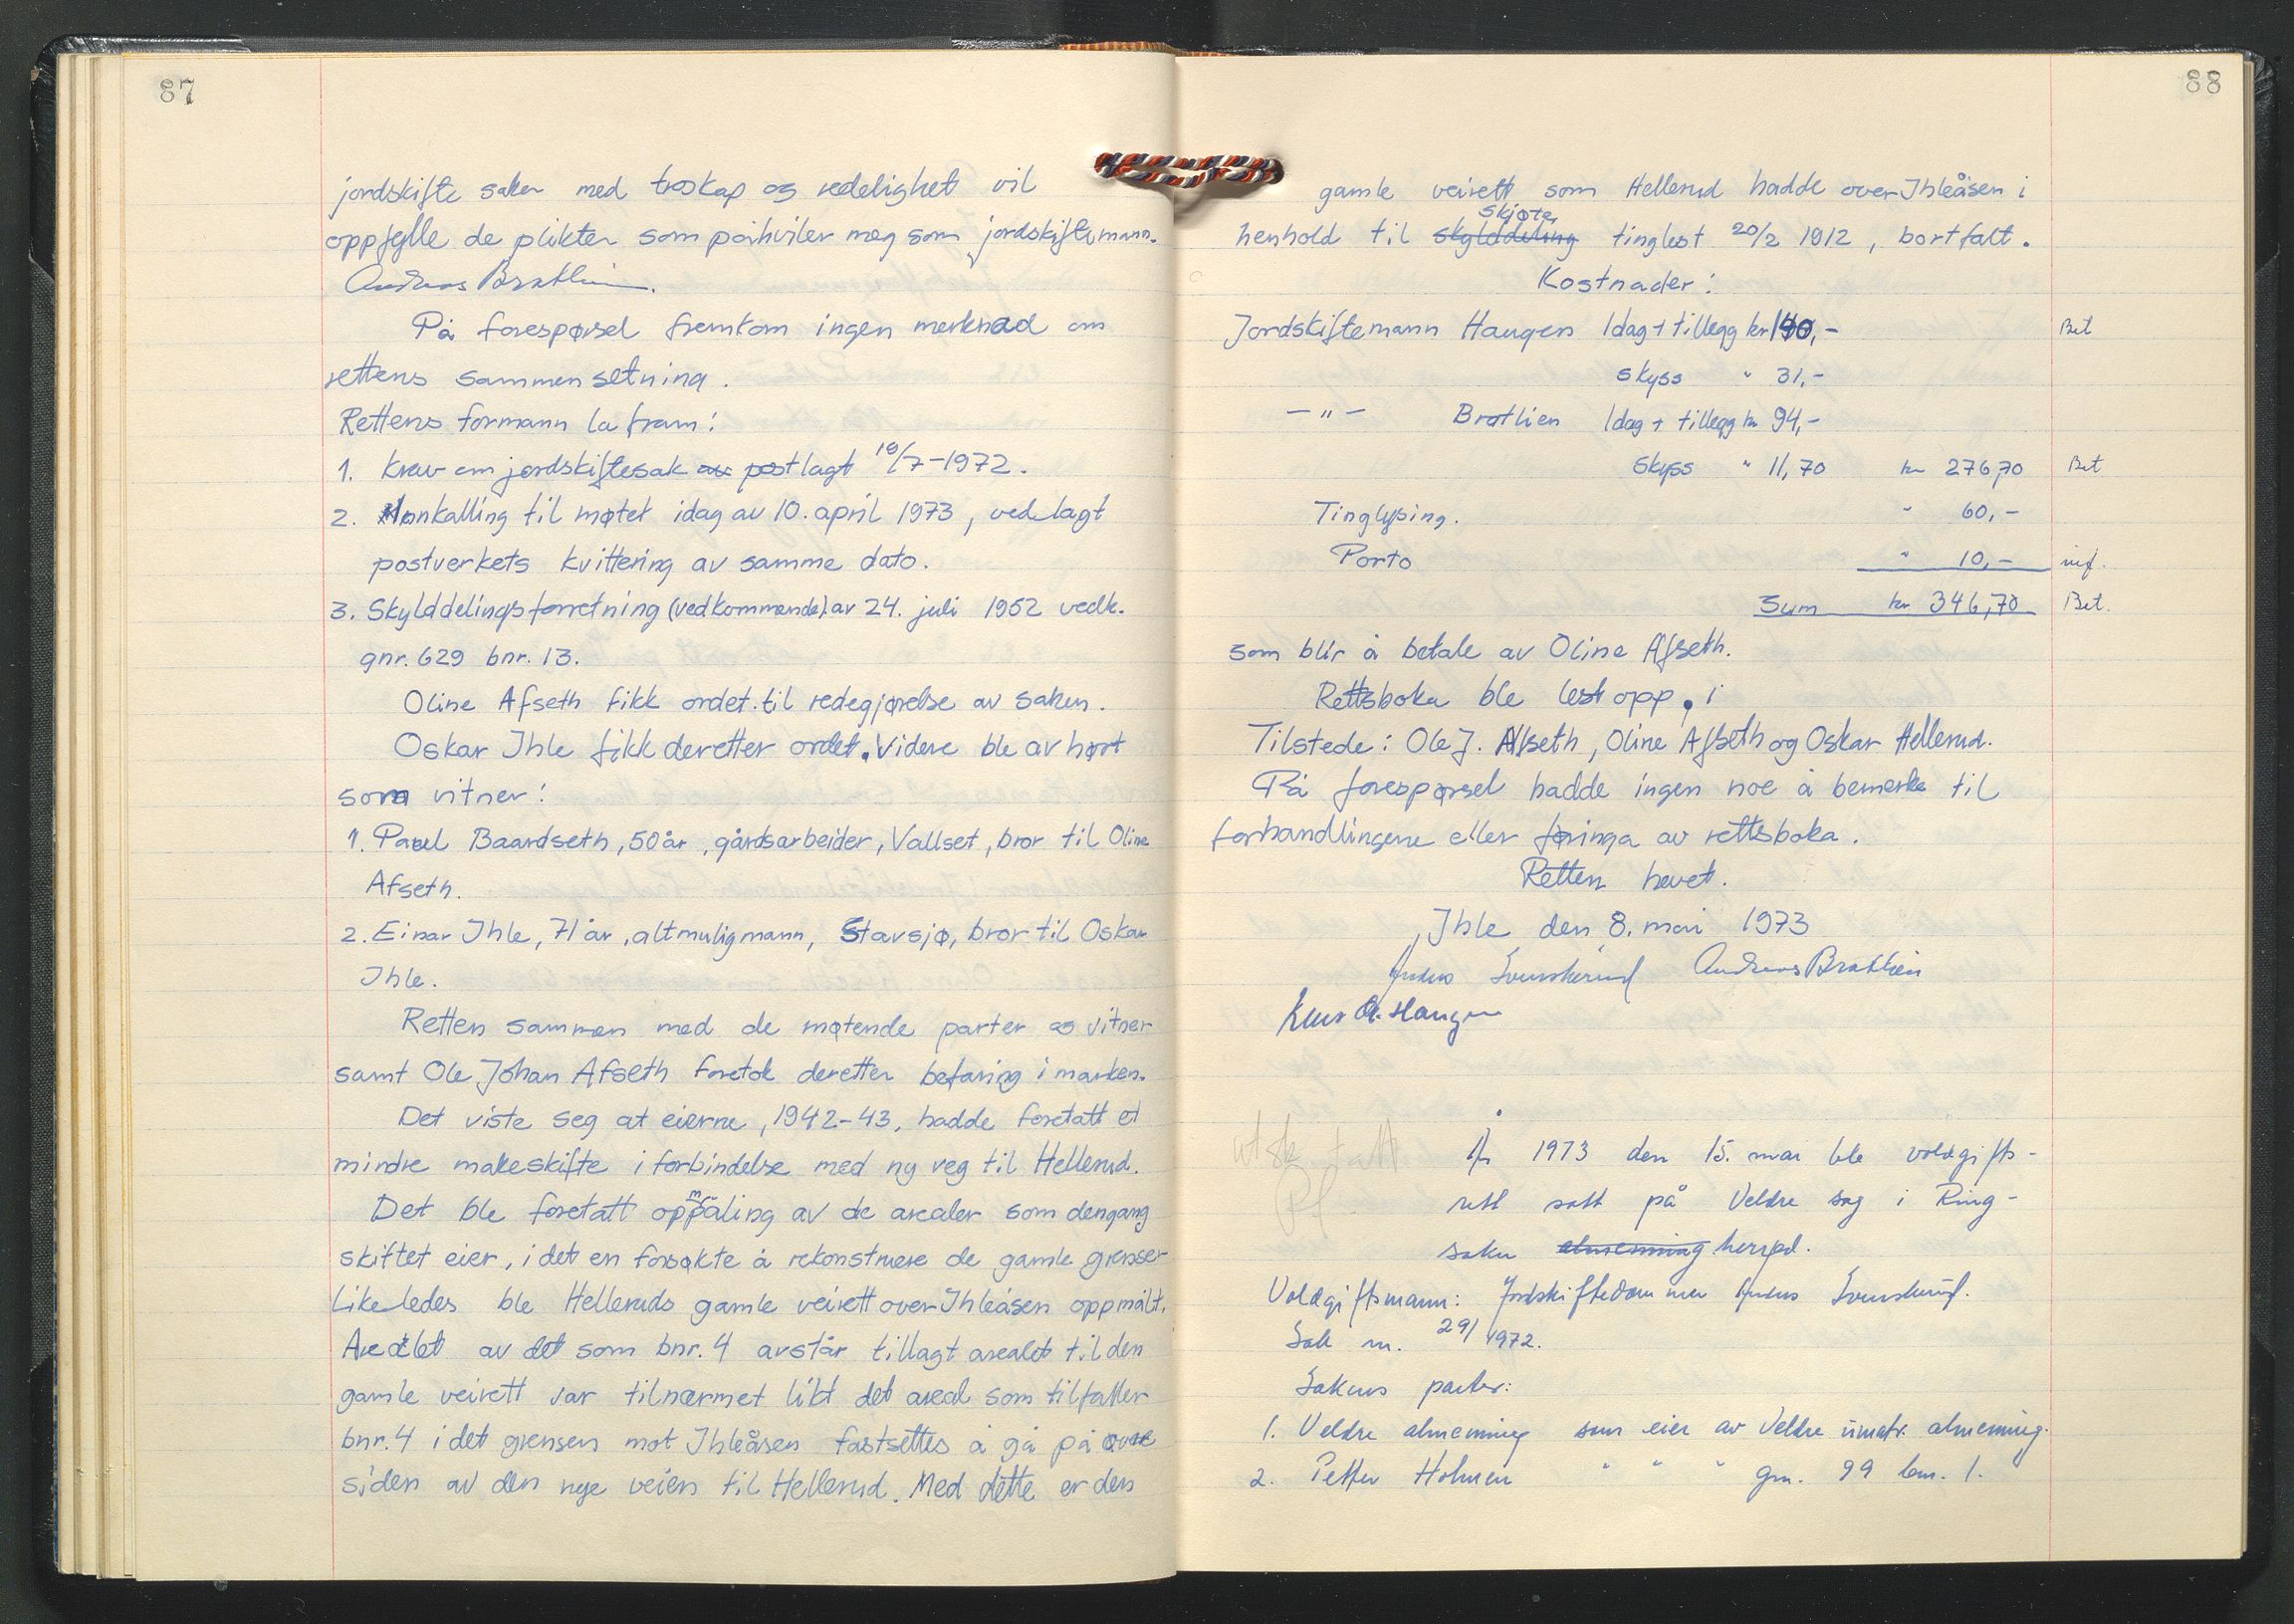 87
jordskifte saker med troskap og redelighet vil
oppfylle de plikter som påhviler meg som jordskiftemann.
Andreas Bratlien.
På forespørsel fremkom ingen merknad om
rettens sammensetning.
Rettens formann la fram:
1. Krav om jordskiftesak postlagt 10/7-1972.
2. Innkalling til møtet idag av 10. april 1973, vedlagt
postverkets kvittering av samme dato.
3. Skylddelingsforretning (vedkommende) av 24. juli 1952 vedk.
gnr. 629 bnr. 13.
Oline Afseth fikk ordet til redegjørelse av saken.
Oskar Ihle fikk deretter ordet. Videre ble avhørt
som vitner:
1. Paul Baardseth, 50 år, gårdsarbeider, Vallset, bror til Oline
Afseth.
2. Einar Ihle, 71 år, altmuligmann, Stavsjø, bror til Oskar
Ihle.
Retten sammen med de møtende parter og vitner
samt Ole Johan Afseth foretok deretter befaring i marken.
Det viste seg at eierne, 1942-43, hadde foretatt et
mindre makeskifte i forbindelse med ny veg til Hellerud.
Det ble foretatt oppmåling av de arealer som dengang
skiftet eier, i det en forsøkte å rekonstruere de gamle grenser
Likeledes ble Helleruds gamle veirett over Ihleåsen oppmålt.
Arealet av det som bnr. 4 avstår tillagt arealet til den
gamle veirett var tilnærmet likt det areal som tilfaller
bnr. 4 i det grensen mot Ihleåsen fastsettes å gå på øvre
siden av den nye veien til Hellerud. Med dette er den
88
gamle veirett som Hellerud hadde over Ihleåsen i
skjøte,
henhold til skylddeling tinglest 20/2 1912, bortfalt.
Kostnader:
Jordskiftemann Haugen 1 dag + tillegg kr 140,- Bet
skyss " 31,-
-"- Bratlien 1 dag + tillegg kr 94,-
Skyss " 11,70 kr 276,70 Bet
Tinglysing. " 60,-
Porto " 10,-
Sum kr 346,70 Bet.
som blir å betale av Oline Afseth.
Rettsboka ble lest opp. i
Tilstede: Ole J. Afseth, Oline Afseth og Oskar Hellerud.
På forespørsel hadde ingen noe å bemerke til
forhandlingene eller føringa av rettsboka.
Retten hevet.
Ihle den 8. mai 1973
Andreas Bratlien
Haugen
utskr. tatt
År 1973 den 15. mai ble voldgifts-
rett satt på Veldre sag i Ring-
saker almenning herred.
Voldgiftsmann: Jordskiftedommer
Sak nr. 29/1972.
Sakens parter:
1. Veldre almenning som eier av Veldre umatr. almenning.
2. Petter Holmen " " " gnr. 99 bnr. 1.